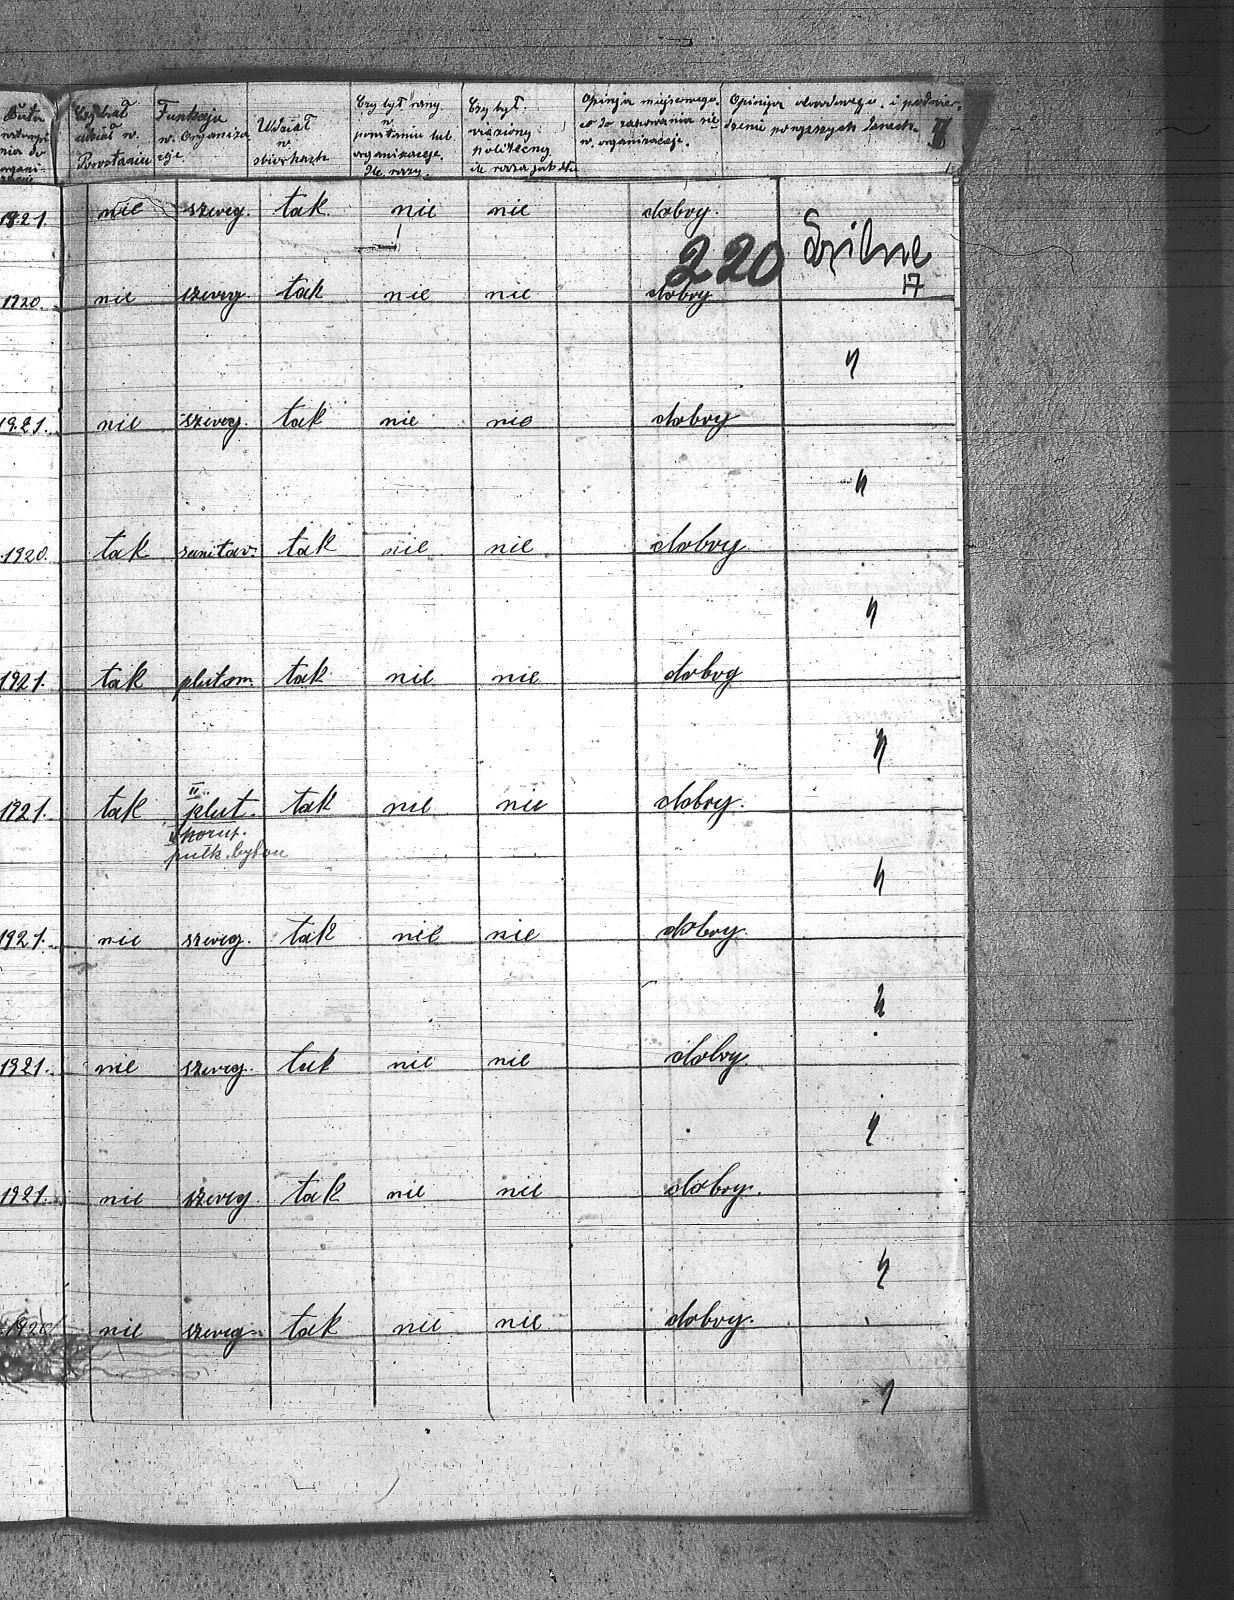 Data
Czy brał udział w. Powstaniu
Funkcja w. Organiza
Udział w. zbiórkach
Czy był rany w powstaniu lub organizacji. Ile razy.
Czy był więziony politeczny ile razy jak
Opinja miejscowego. co do zachowania się w. organizacji.
Opinija obwodowego. i potwier- dzenie powyższych danych.
1921. nie szereg. tak. nie nie dobry.
220
1920. nie szereg. tak nie nie dobry
17
1921. nie szereg. tak nie nie dobry
1920. tak sanitar. tak nie nie dobry
1921. tak pluton. tak nie nie dobry
II
1921. tak plut. tak nie nie dobry.
1921. nie szereg. tak nie nie dobry.
1921. nie szereg. tak nie nie dobry.
1921. nie szereg. tak nie nie dobry.
1920 nie szereg. tak nie nie dobry.